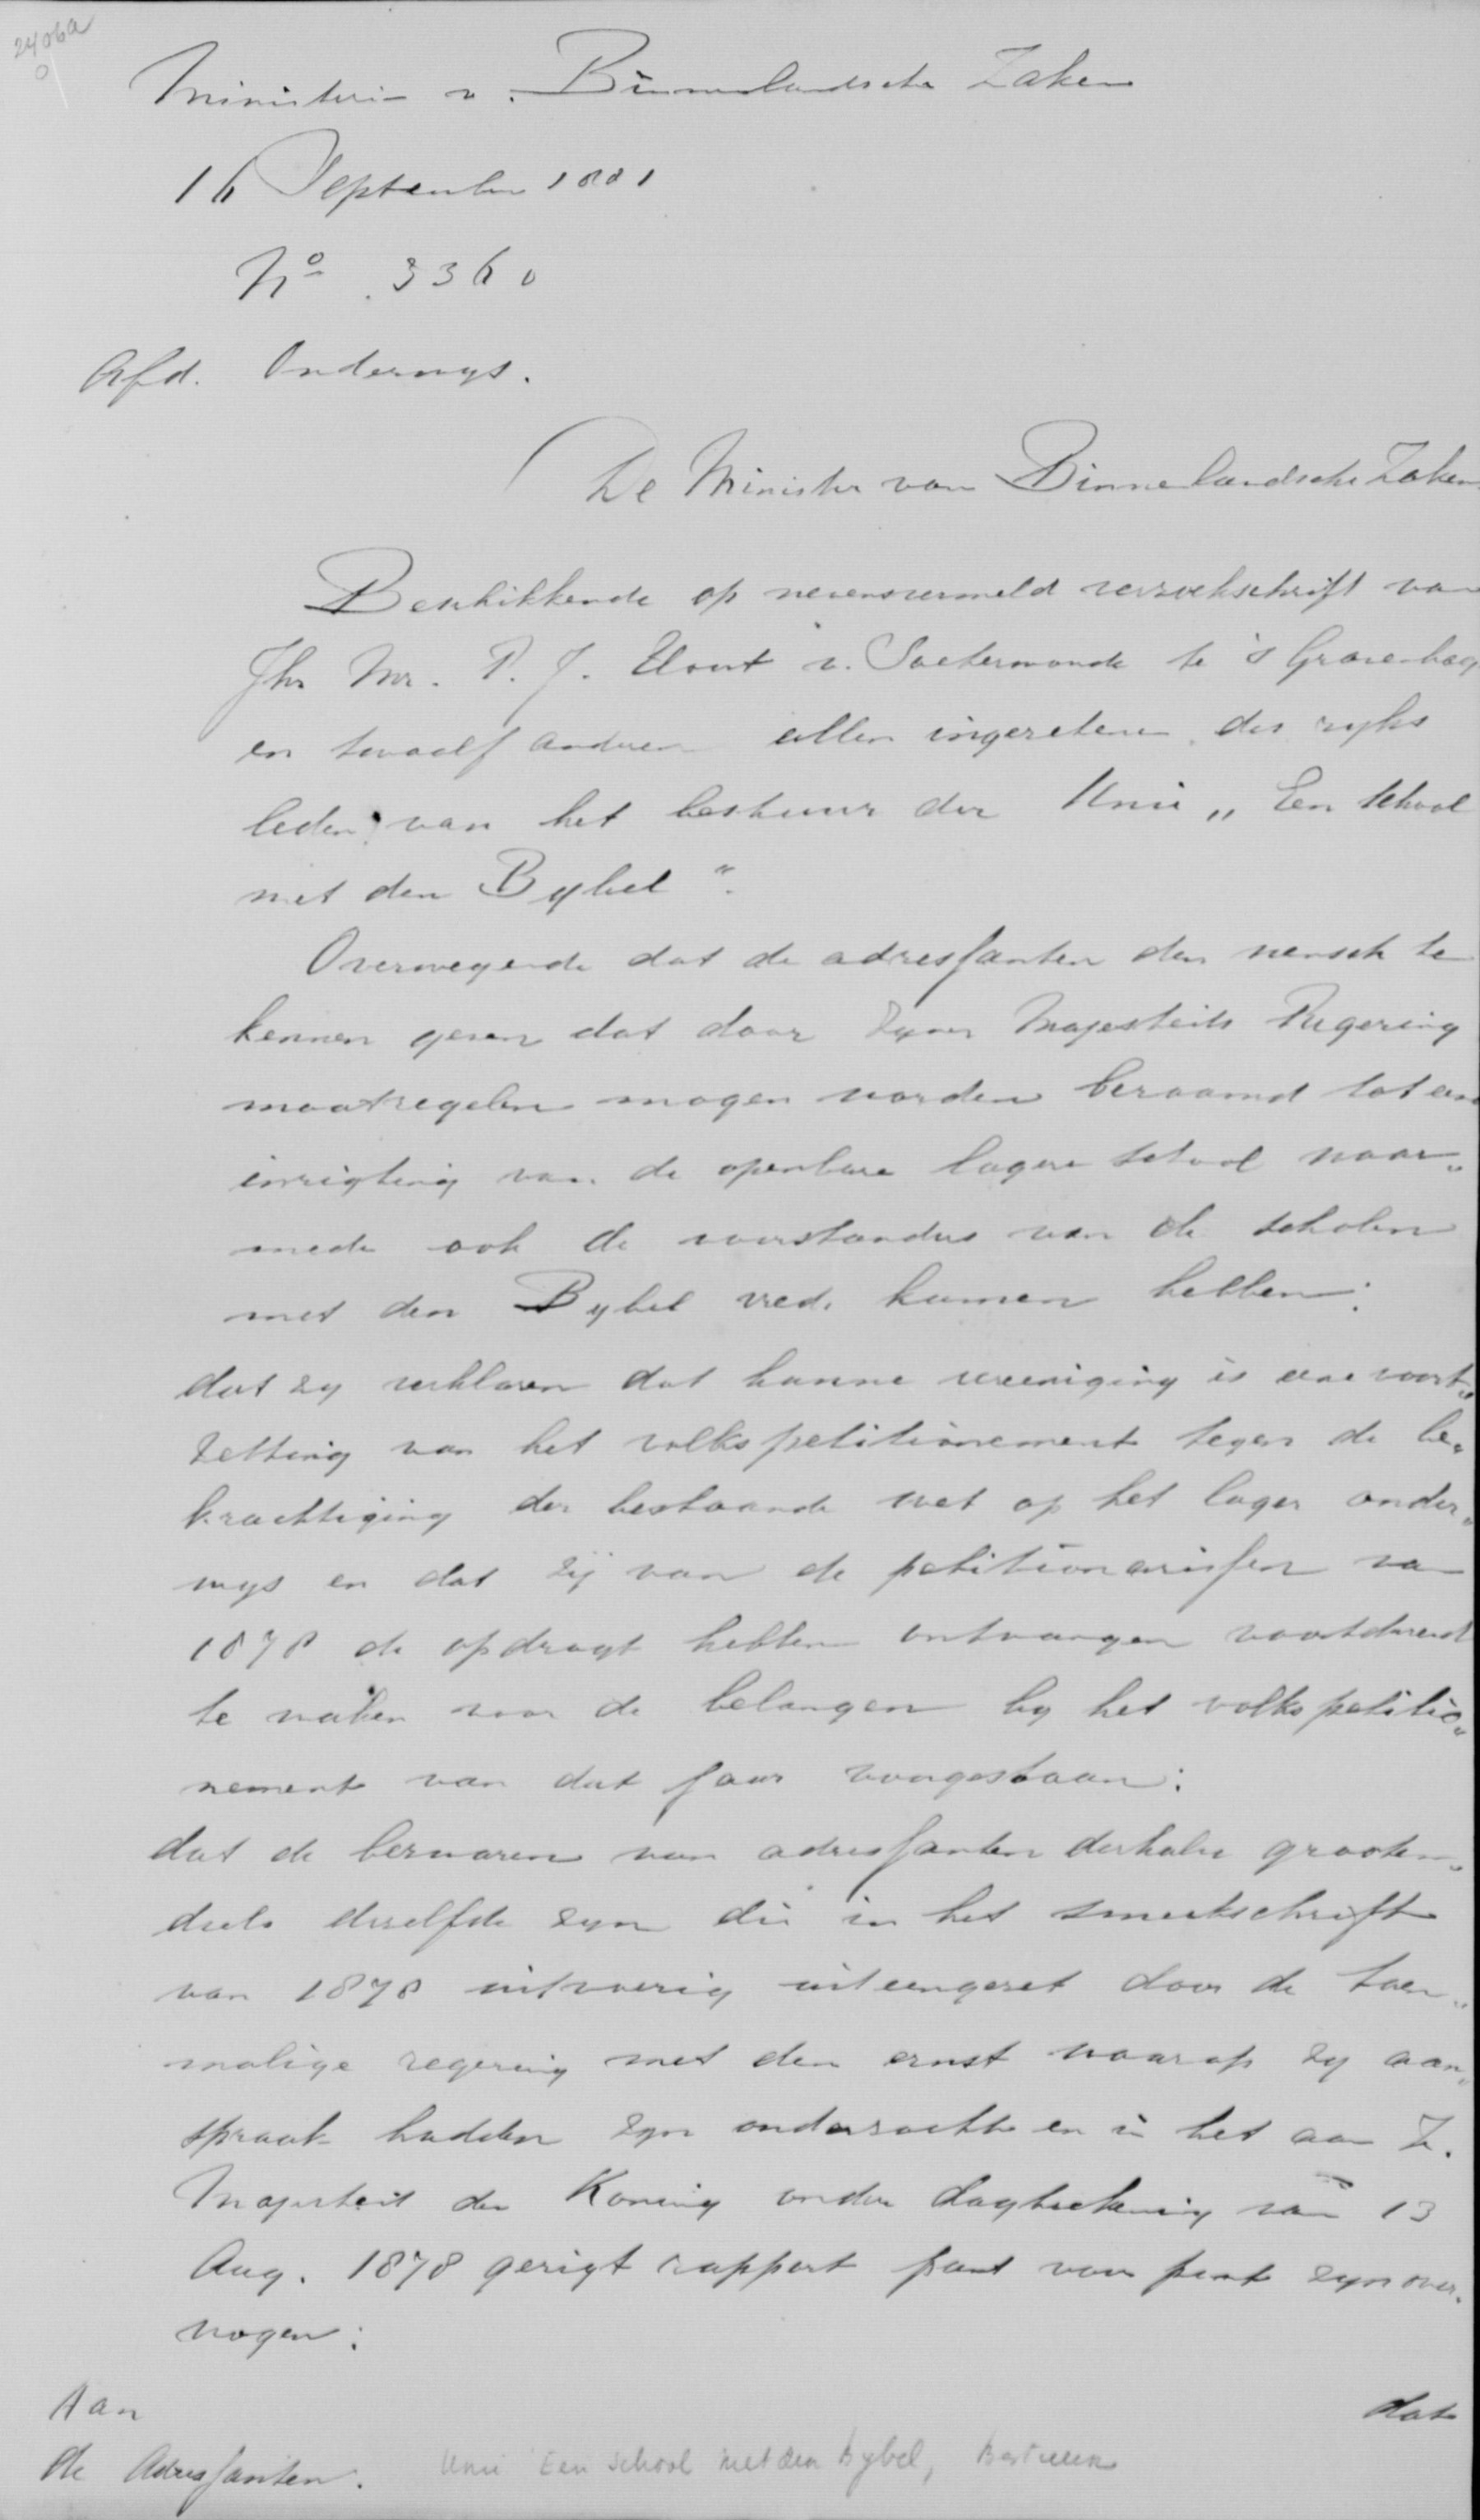 2406a
0
Ministerie v. Binnenlandsche Zaken
16 September 1881
No. 3360
Afd. Onderwys.
De Minister van Binnenlandsche Zaken
Beschikkende op nevensvermeld verzoekschrift van
Jhr Mr. P. J. Elout v. Soeterwoude te 's Gravenhag
en twaalf anderen allen ingezetenen des ryks
leden van het bestuur der Unie „Een School
met den Bybel".
Overwegende dat de adressanten den wensch te
kennen geven dat door Zyner Majesteits Regering
maatregelen mogen worden beraamd tot eene
inrigting van de openbare lagere school waar„
mede ook de voorstanders van de scholen
met den Bybel vrede kunnen hebben:
dat zy verklaren dat hunne vereeniging is eene voort„
zetting van het volkspetitionement tegen de be„
krachtiging der bestaande wet op het lager onder„
wys en dat zij van de petitionarissen van
1878 de opdragt hebben ontvangen voortdurend
te waken voor de belangen by het volkspetitio„
nement van dat jaar voorgestaan:
dat de bezwaren van adressanten derhalve grooten„
deels dezelfde zyn die in het smeekschrift
van 1878 uitvoerig uiteengezet door de toen„
malige regering met den ernst waarop zy aan„
spraak hadden zyn onderzocht en in het aan Z.
Majesteit den Koning onder dagteekening van 13
Aug. 1878 gerigt rapport punt voor punt zyn over„
wogen:
dat
Aan
de Adressanten.
Unie Een school met den Bybel, Bestuur